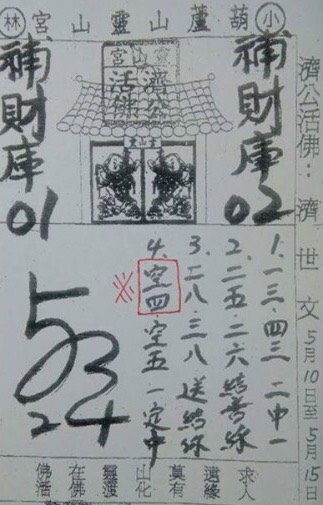 小葫蘆山靈山宮林
濟公活佛:濟世文 5月10日至5月15日
補財庫02
靈山宮
濟公
活佛
補財庫01
1.一三.四三 二中一
2.二五.二六 結善緣
3.二八.三八 送結緣
4.空四.空五 一定中
※
5 3
2 4
佛在靈山莫遠求
活佛渡化有緣人